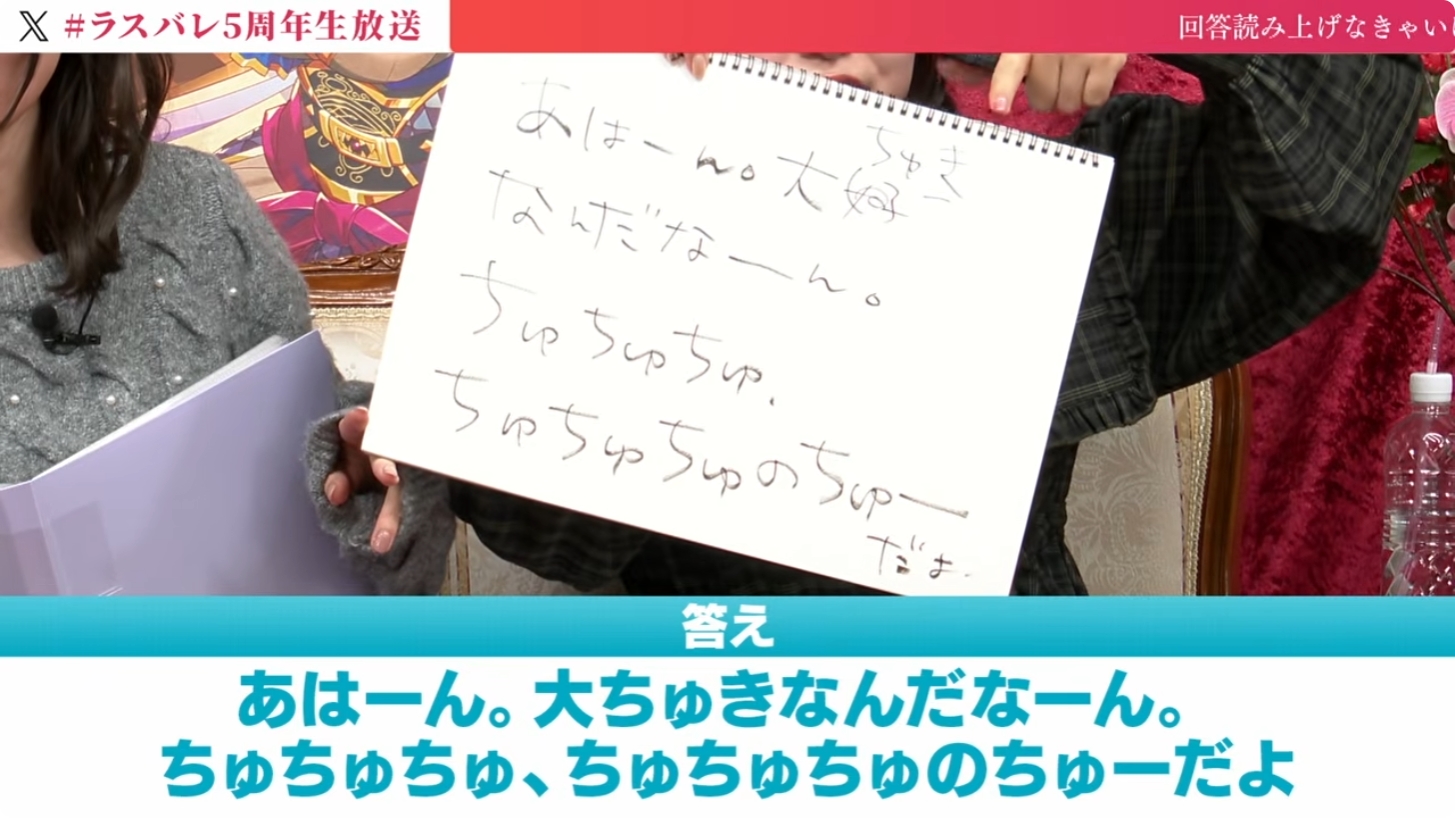 #ラスバレ5周年生放送
回答読み上げなきゃい
あはーん。大好
ちゅき
なんだなーん。
ちゅちゅちゅ.
ちゅちゅちゅのちゅー
だよ.
答え
あはーん。大ちゅきなんだなーん。
ちゅちゅちゅ、ちゅちゅちゅのちゅーだよ